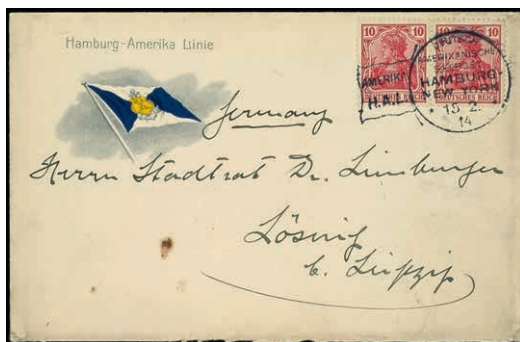 Hamburg-Amerika Linie
10 10 10 10
DEUTSCH
AMERIKANISCHE
SEEPOST
HAMBURG
NEW YORK
* 15.2.
14
AMERIKA
H.A.L.
Germany
Herrn Stadtrat Dr. Limburger
Lösnig
b. Leipzig